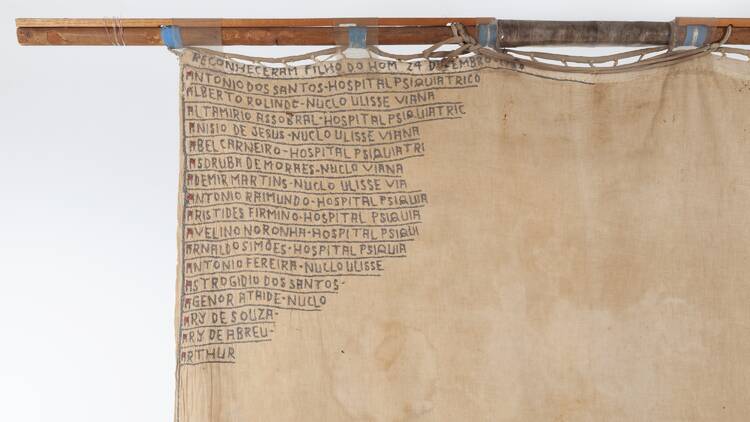 RECONHECERAM FILHO DO HOM 24 DEZEMBRO
ANTONIO DOS SANTOS-HOSPITAL PSIQUIATRICO
ALBERTO ROLINDE-NUCLO ULISSE VIANA
ALTAMIRIO ASSOBRAL-HOSPITAL PSIQUIATRIC
ANISIO DE JESUS-NUCLO ULISSE VIANA
ABEL CARNEIRO-HOSPITAL PSIQUIATRI
ASDRUBA DE MORAES-NUCLO VIANA
ADEMIR MARTINS-NUCLO ULISSE VIA
ANTONIO RAIMUNDO-HOSPITAL PSIQUIA
ARISTIDES FIRMINO-HOSPITAL PSIQUIA
AVELINO NORONHA-HOSPITAL PSIQUI
ARNALDO SIMÕES-HOSPITAL PSIQUIA
ANTONIO FEREIRA-NUCLO ULISSE
ASTROGIDIO DOS SANTOS-
AGENOR ATAIDE-NUCLO
ARY DE SOUZA-
ARY DE ABREU-
ARTHUR